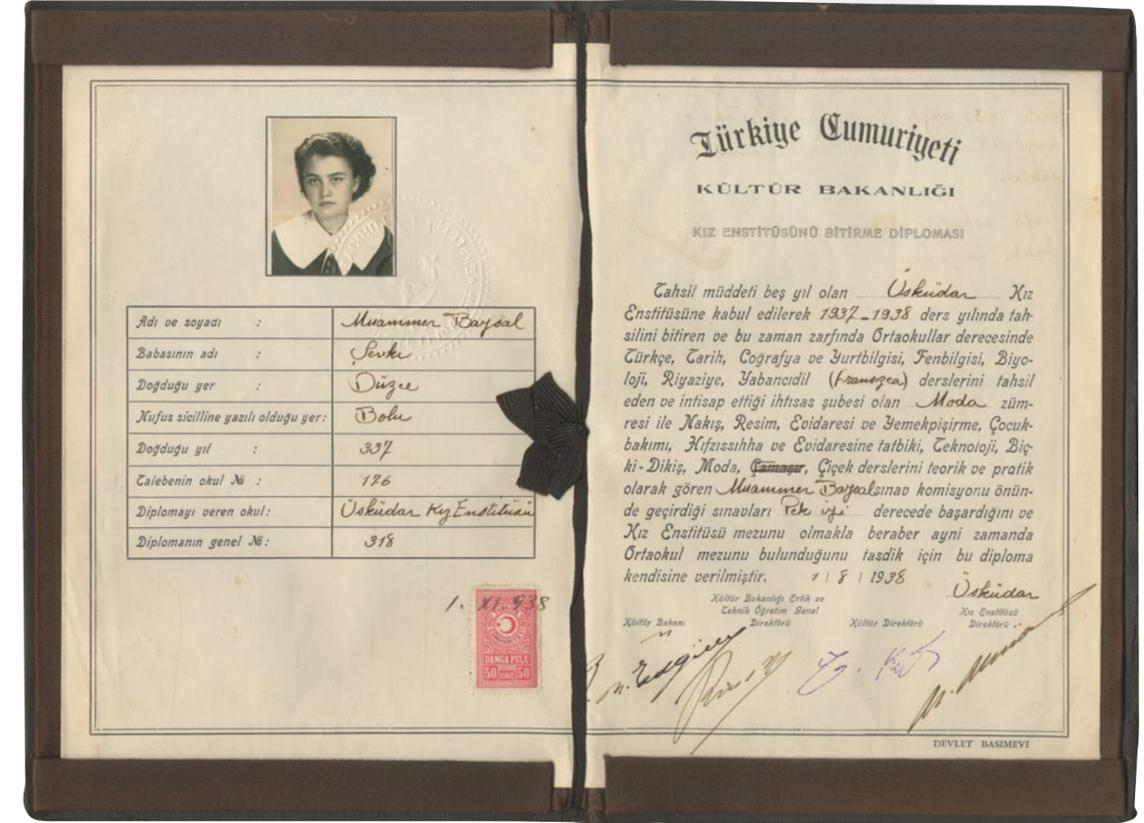 Adı ve soyadı : Muammer Baysal
Babasının adı : Şevki
Doğduğu yer : Düzce
Nufus sicilline yazılı olduğu yer: Bolu
Doğduğu yıl : 337
Talebenin okul № : 126
Diplomayı veren okul: Üsküdar Kız Enstitüsü
Diplomanın genel №: 318
1. XI. 938
DAMGA PULU
50 50
Türkiye Cumuriyeti
KÜLTÜR BAKANLIĞI
KIZ ENSTİTÜSÜNÜ BİTİRME DİPLOMASI
Tahsil müddeti beş yıl olan Üsküdar Kız
Enstitüsüne kabul edilerek 1937-1938 ders yılında tah-
silini bitiren ve bu zaman zarfında Ortaokullar derecesinde
Türkçe, Tarih, Coğrafya ve Yurtbilgisi, Fenbilgisi, Biyo-
loji, Riyaziye, Yabancıdil (Fransızca) derslerini tahsil
eden ve intisap ettiği ihtisas şubesi olan Moda züm-
resi ile Nakış, Resim, Evidaresi ve Yemekpişirme, Çocuk-
bakımı, Hıfzıssıhha ve Evidaresine tatbiki, Teknoloji, Biç-
ki-Dikiş, Moda, Çamaşır, Çiçek derslerini teorik ve pratik
olarak gören Muammer Baysal sınav komisyonu önün-
de geçirdiği sınavları Pek iyi derecede başardığını ve
Kız Enstitüsü mezunu olmakla beraber ayni zamanda
Ortaokul mezunu bulunduğunu tasdik için bu diploma
kendisine verilmiştir. 1 / 8 / 1938
Üsküdar
Kültür Bakanlığı Ertik ve
Teknik Öğretim Genel
Direktörü
Kız Enstitüsü
Direktörü
Kültür Bakanı
Kültür Direktörü
DEVLET BASIMEVİ